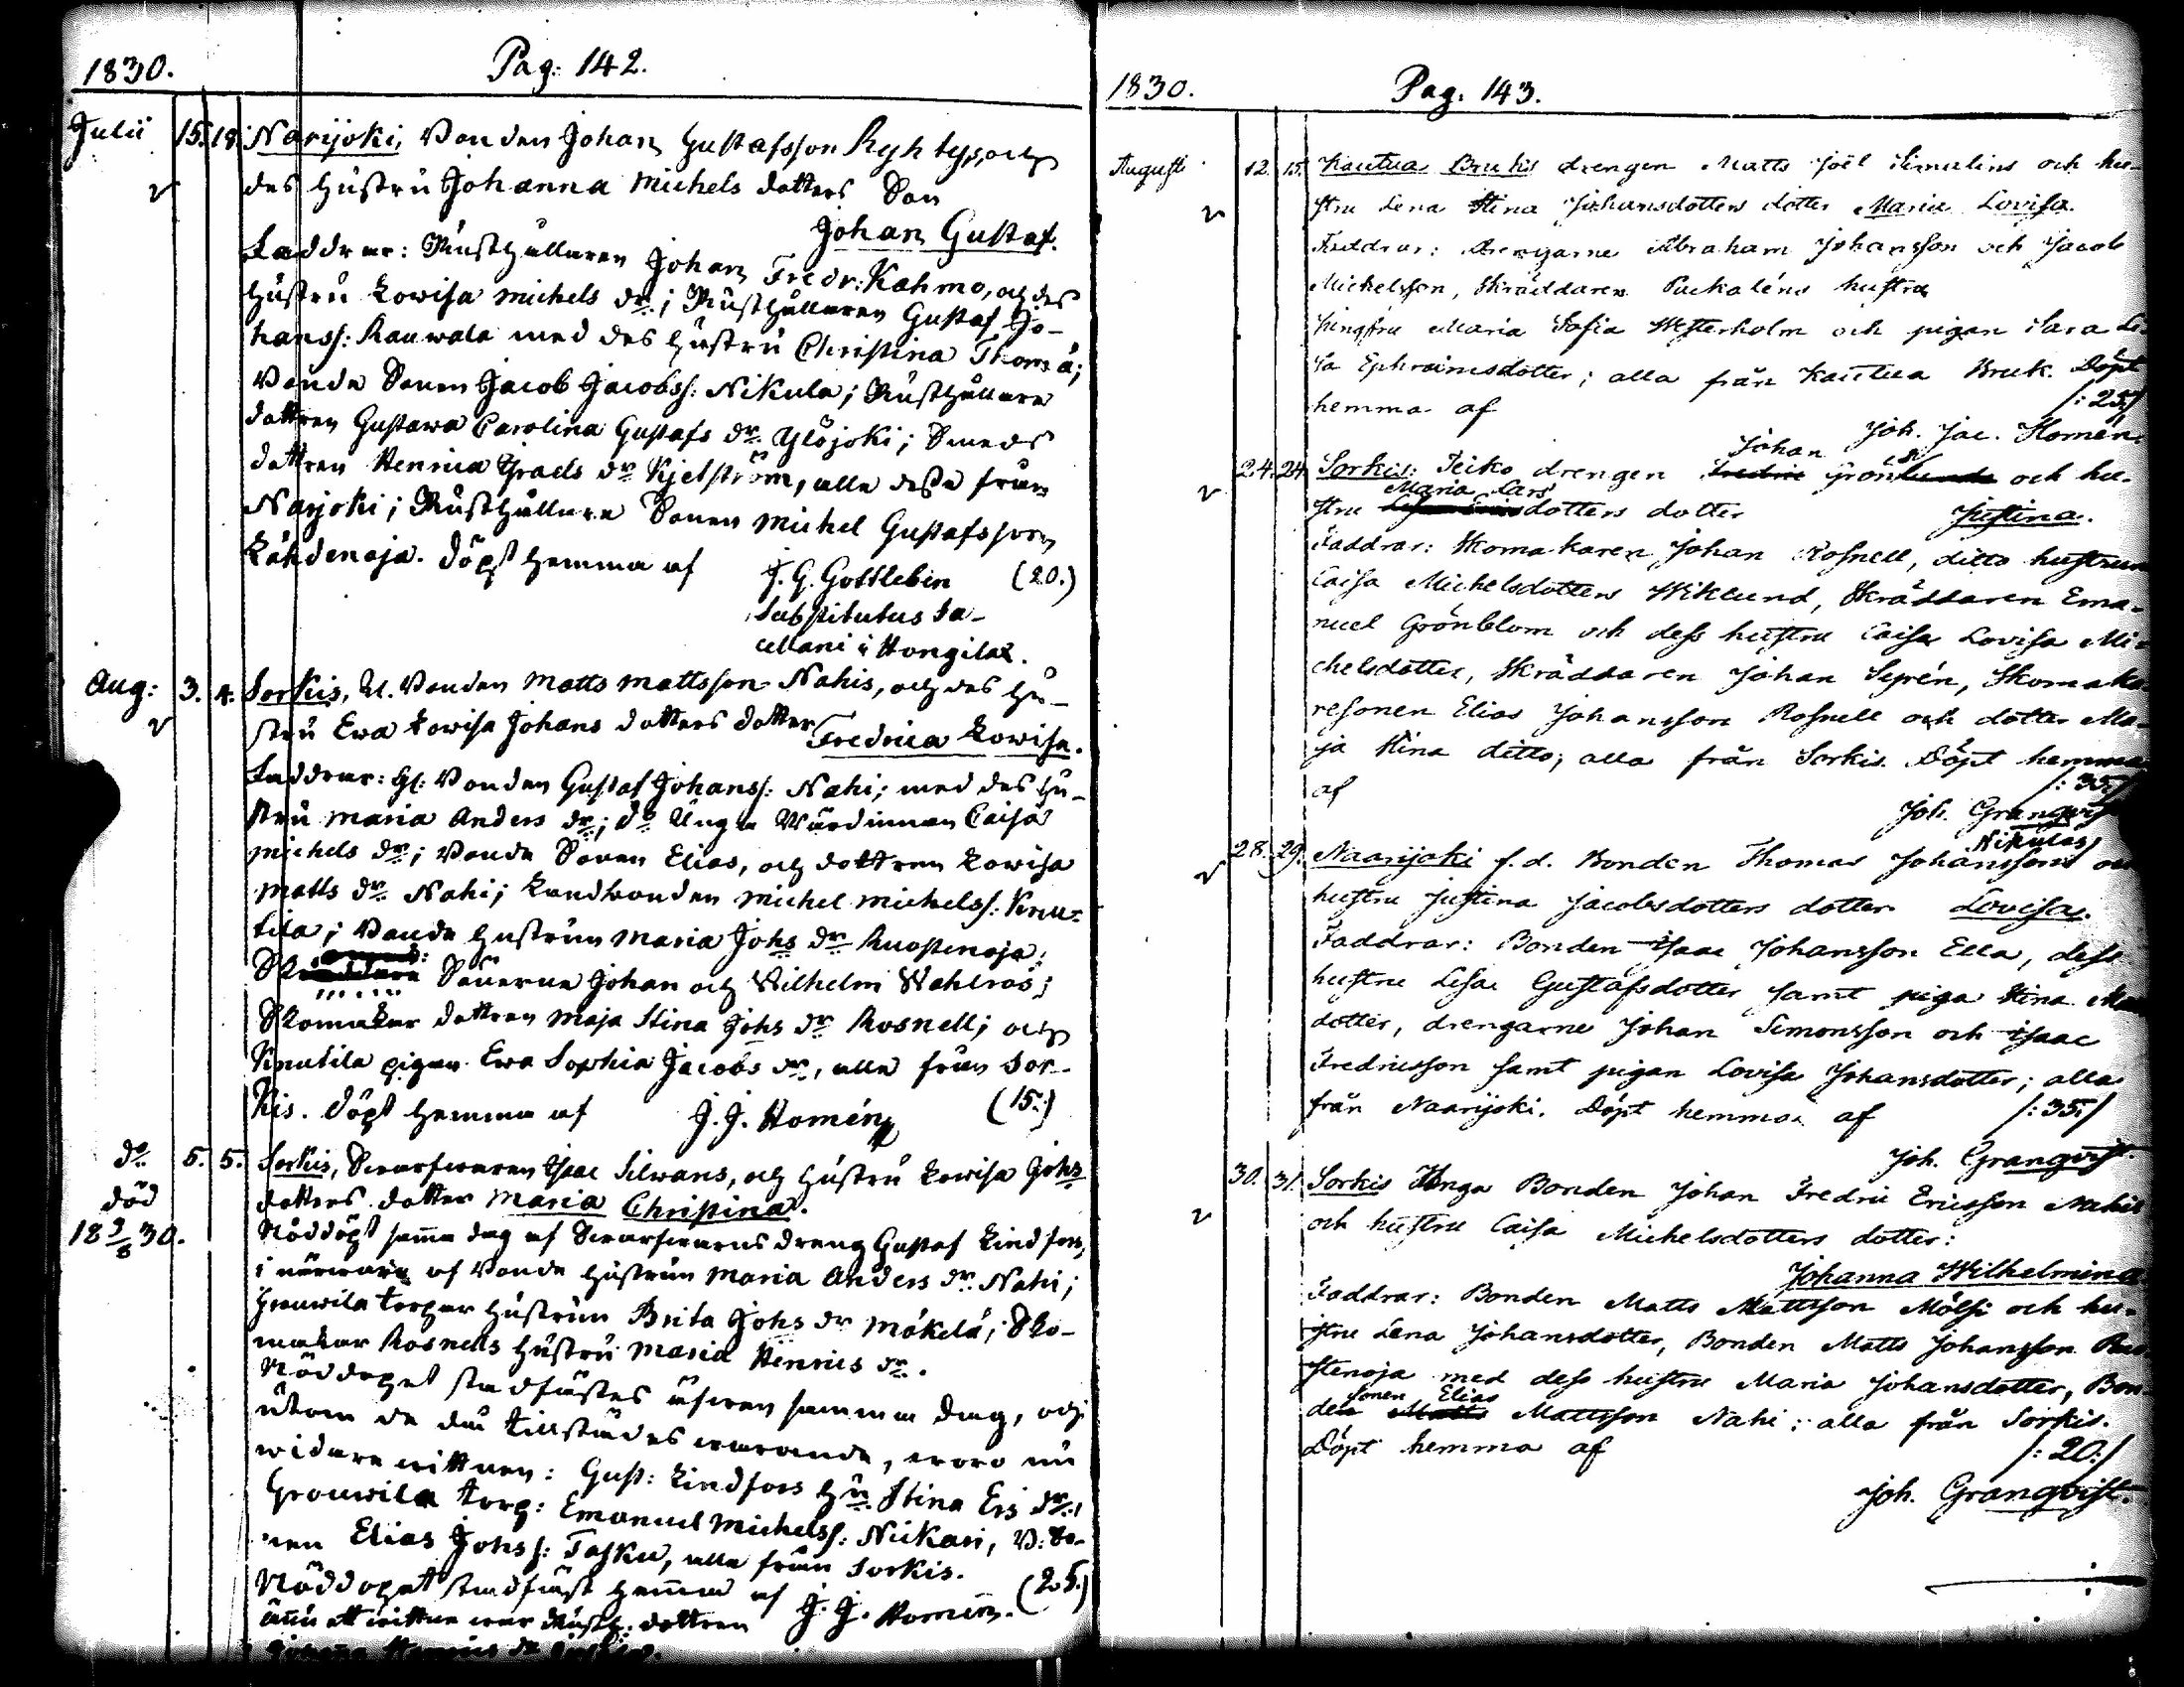 1830. Pag: 142.
Julii 15. 18. Narijoki, Bonden Johan Gustafsson Ryhtys, och
des hustru Johanna Michels dotters Son
Johan Gustaf.
Faddrar: Rusthållaren Johan Fredr: Kahmo, och des
hustru Lowisa Michels dr; Rusthållaren Gustaf Jo-
hanss: Rauwala med des hustru Christina Thom ä;
Bonde Sonen Jacob Jacobss: Nikula; Rusthållare
dottren Gustawa Carolina Gustafs dr. Ylöjoki; Smeds
dottren Henrica Israels dr Kjelström, alla dessa från
Narjoki; Rusthållare Sonen Michel Gustafsson
Lähdenoja. Döpt hemma af J. G. Gottlebin (20.)
Substitutus Sa-
cellani i Hongilax.
Aug: 3. 4. Sorkis, Bonden Matts Mattsson Nahis, och des hu-
stru Ewa Lowisa Johans dotters dotter
Fredrica Lowisa.
Faddrar: Gl: Bonden Gustaf Johanss: Nahi; med des hu-
stru Maria Anders dr; do Unga Wärdinnan Caisa
Michels dr; Bonde Sonen Elias, och dottren Lowisa
Matts dr Nahi; Landbonden Michel Michelss: Knu-
tila; Bonde hustrun Maria Johs dr Ruostenoja;
Sönerne Johan och Wilhelm Wahlros;
Skomakar dottren Maja Stina Johs dr Rosnell; och
Knutila pigan Ewa Sophia Jacobs dr, alla från Sor-
kis. Döpt hemma af J. J. Homén (15.)
do 5. 5. Sorkis, Swarfwaren Isac Silwans, och hustru Lowisa Johs
död dotters dotter Maria Christina.
18 9/8 30. Nöddöpt samma dag af Swarfwarens dreng Gustaf Lindfors,
i närwaro af Bonde hustrun Maria Anders dr Nahi;
Grouwila torpar hustrun Brita Johs dr Mäkelä; Sko-
makar Rosnells hustru Maria Henrics dr.
Nöddopet stadfästes äfwen samma dag, och
utom de där tillstädes warande, woro nu
widare wittnen: Gust: Lindfors hu. Stina Ers dr,
Grouwila torp: Emanuel Michelss: Niikari, B: So-
nen Elias Johss: Tasku, alla från Sorkis.
Nöddopet stadfäst hemma af J. J. Homén. (25.)
ännu ett wittne war Rusth: dottren
1830. Pag: 143.
Augusti 12. 15. Kautua Bruks drengen Matts Joël Simelins och hu-
stru Lena Stina Johansdotters dotter Maria Lovisa.
Faddrar: Drengarne Abraham Johansson och Jacob
Mickelsson, Skräddaren Packaléns hustru
Jungfru Maria Sofia Westerholm och pigan Sara Li-
sa Ephraimsdotter; alla från Kautua Bruk. Döpt
hemma af /:25:/
Joh. Jac. Homén.
Johan
24. 24. Sorkis: Seiko drengen Fredric Grönlunds och hu-
Maria Lars
stru dotters dotter Justina.
Faddrar: Skomakaren Johan Rosnell, ditto hustrun
Caisa Michelsdotters Wiklund, Skräddaren Ema-
nuel Grönblom och dess hustru Caisa Lovisa Mi-
chelsdotter, Skräddaren Johan Syrén, Skomaka-
resonen Elias Johansson Rosnell och dotter Ma-
ja Stina ditto; alla från Sorkis. Döpt hemma
af /:35:/
Joh. Granqvist
Nikulas
28. 29. Naarijoki f. d. Bonden Thomas Johanssons och
hustru Justina Jacobsdotters dotter Lovisa.
Faddrar: Bonden Isaac Johansson Ella, dess
hustru Lisa Gustafsdotter samt piga Stina
dotter, drengarne Johan Simonsson och Isaac
Fredricsson samt pigan Lovisa Johansdotter; alla
från Naarijoki. Döpt hemma af /:35:/
Joh. Granqvist.
30. 31. Sorkis Unga Bonden Johan Fredric Ericsson Nahis
och hustru Caisa Michelsdotters dotter:
Johanna Wilhelmina
Faddrar: Bonden Matts Mattsson Mölsi och hu-
stru Lena Johansdotter, Bonden Matts Johansson Ruo-
stenoja med dess hustru Maria Johansdotter, Bon-
Sonen Elias
den Matts Mattsson Nahi; alla från Sorkis.
Döpt hemma af /:20:/
Joh. Granqvist.